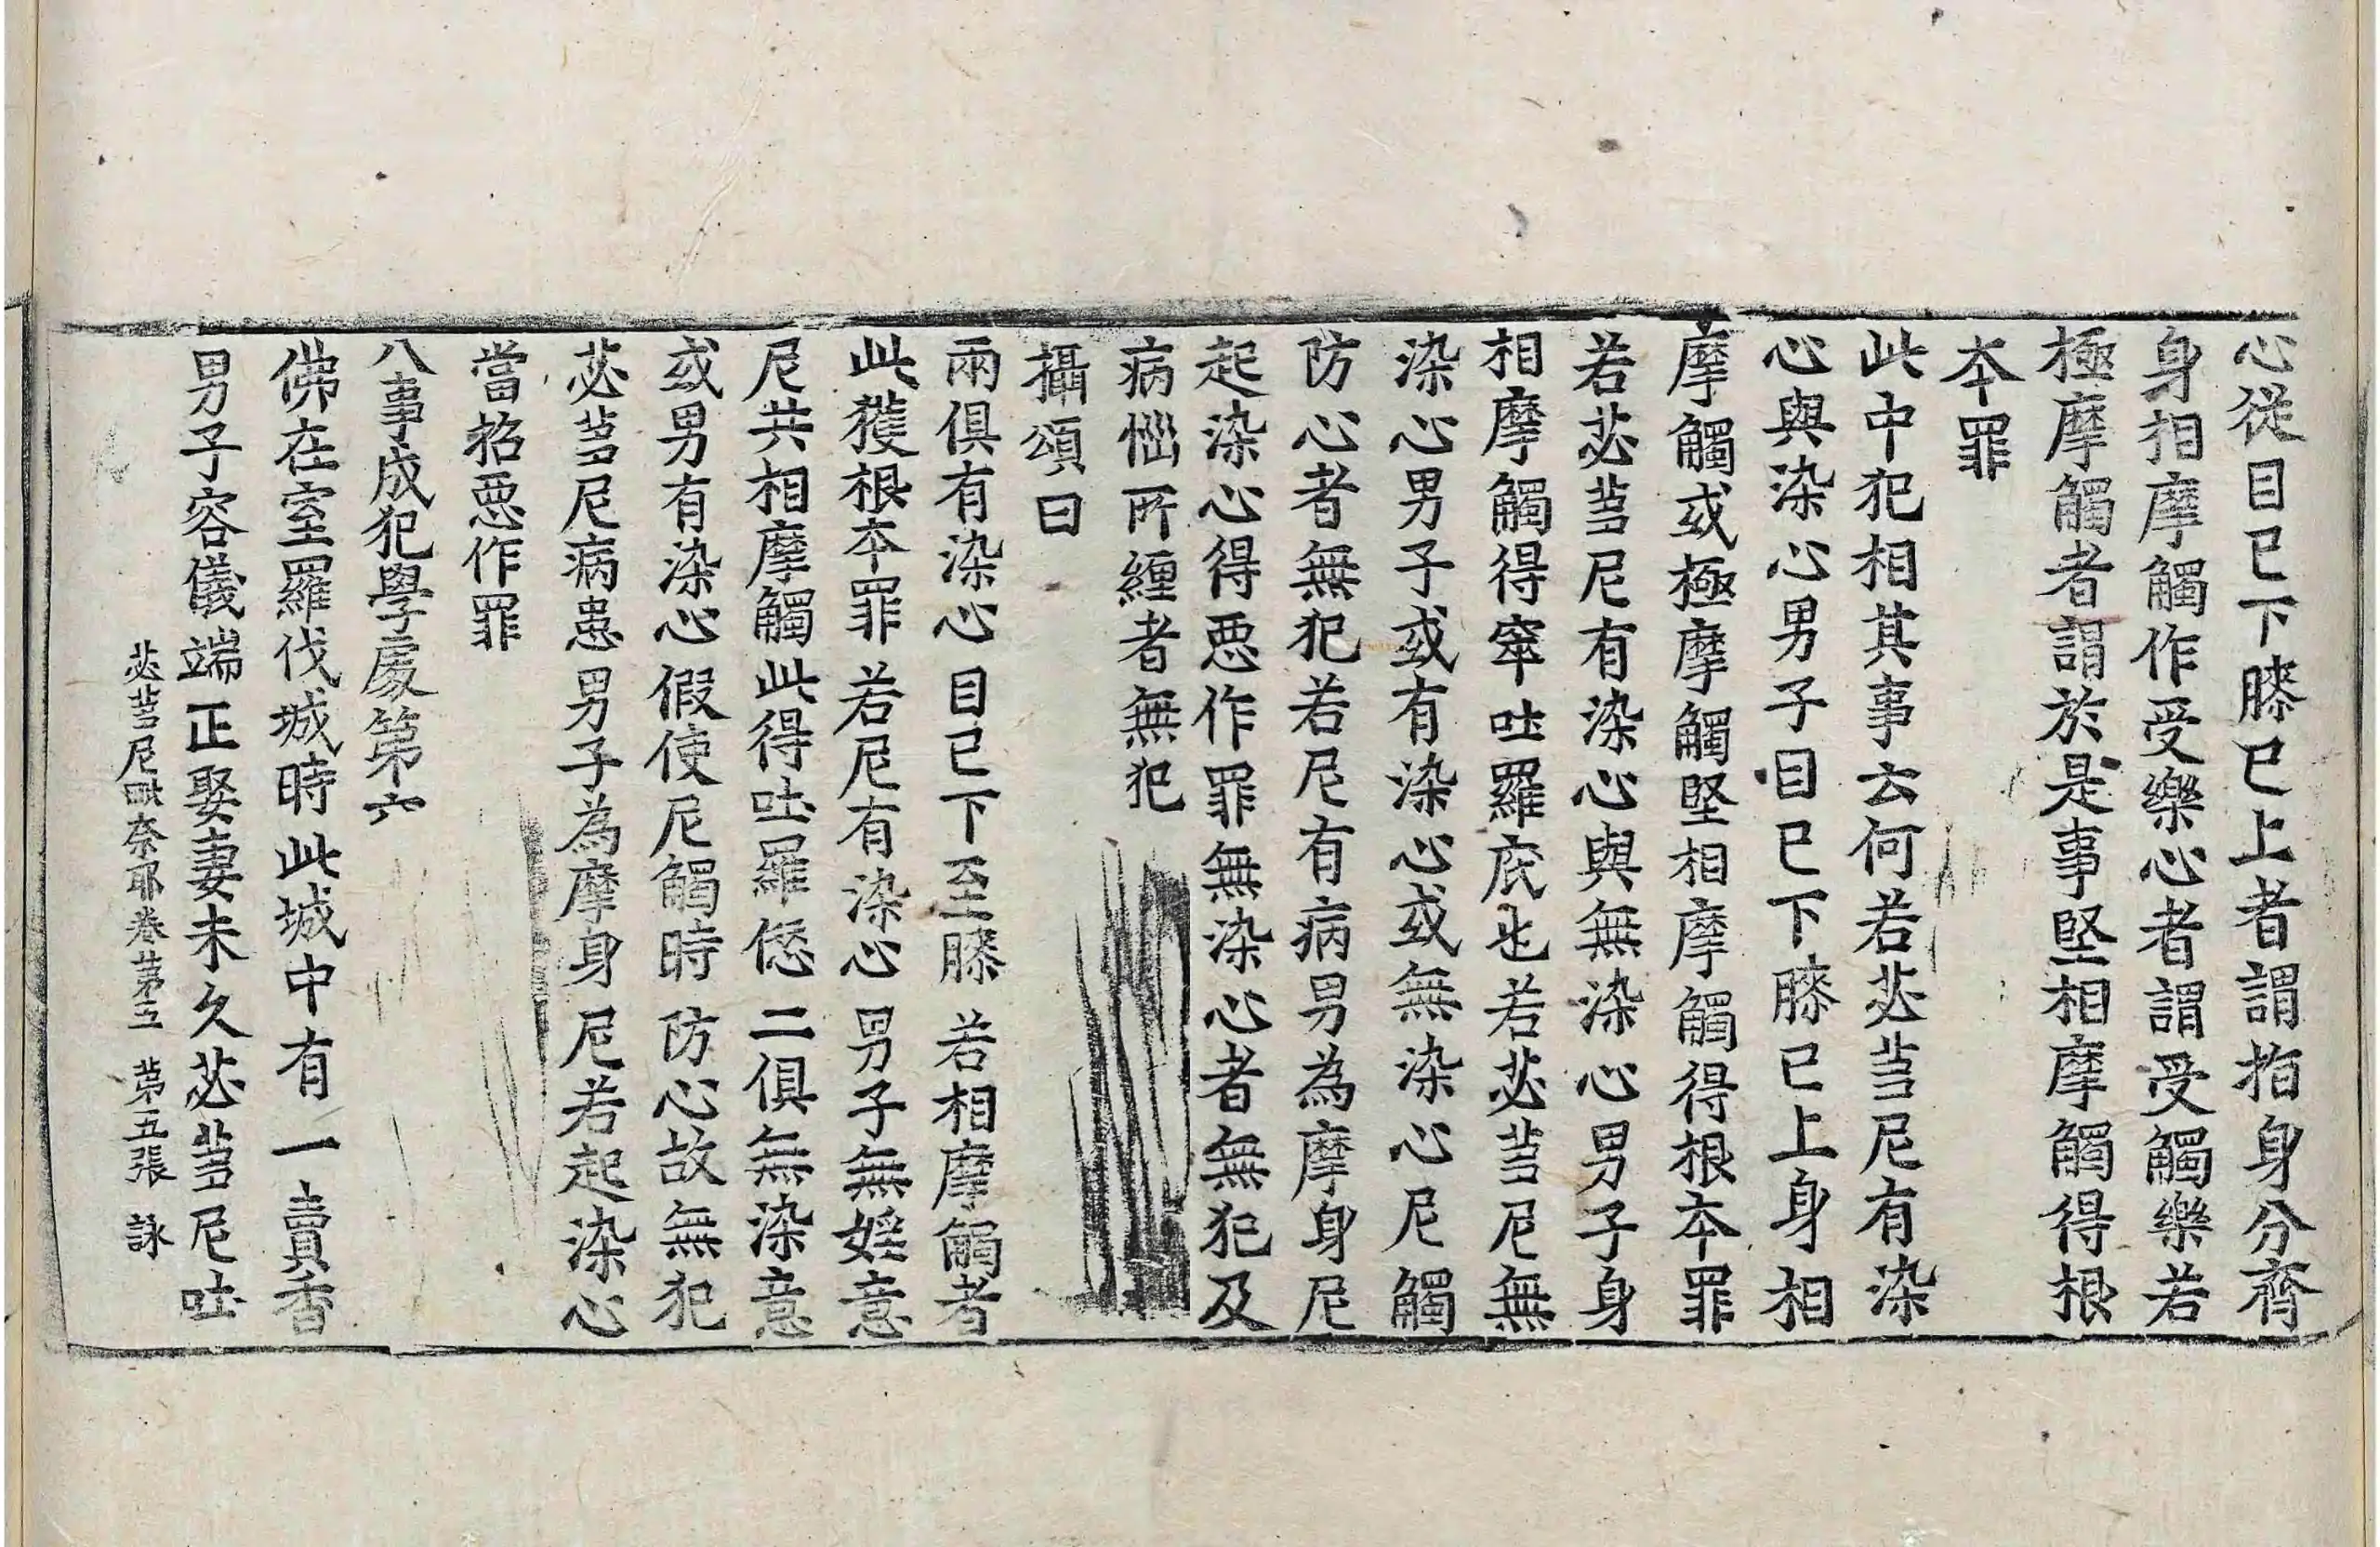 心從目已下膝已上者謂指身分齊
身相摩觸作受樂心者謂受觸樂若
極摩觸者謂於是事堅相摩觸得根
本罪
此中犯相其事云何若苾芻尼有染
心與染心男子目已下膝已上身相
摩觸或極摩觸堅相摩觸得根本罪
若苾芻尼有染心與無染心男子身
相摩觸得窣吐羅底也若苾芻尼無
染心男子或有染心或無染心尼觸
防心者無犯若尼有病男為摩身尼
起染心得惡作罪無染心者無犯及
病惱所纏者無犯
攝頌曰
兩俱有染心 目已下至膝 若相摩觸者
此獲根本罪 若尼有染心 男子無婬意
尼共相摩觸 此得吐羅愆 二俱無染意
或男有染心 假使尼觸時 防心故無犯
苾芻尼病患 男子為摩身 尼若起染心
當招惡作罪
八事成犯學處第六
佛在室羅伐城時此城中有一賣香
男子容儀端正娶妻未久苾芻尼吐
苾芻尼毗奈耶卷第五 第五張 詠